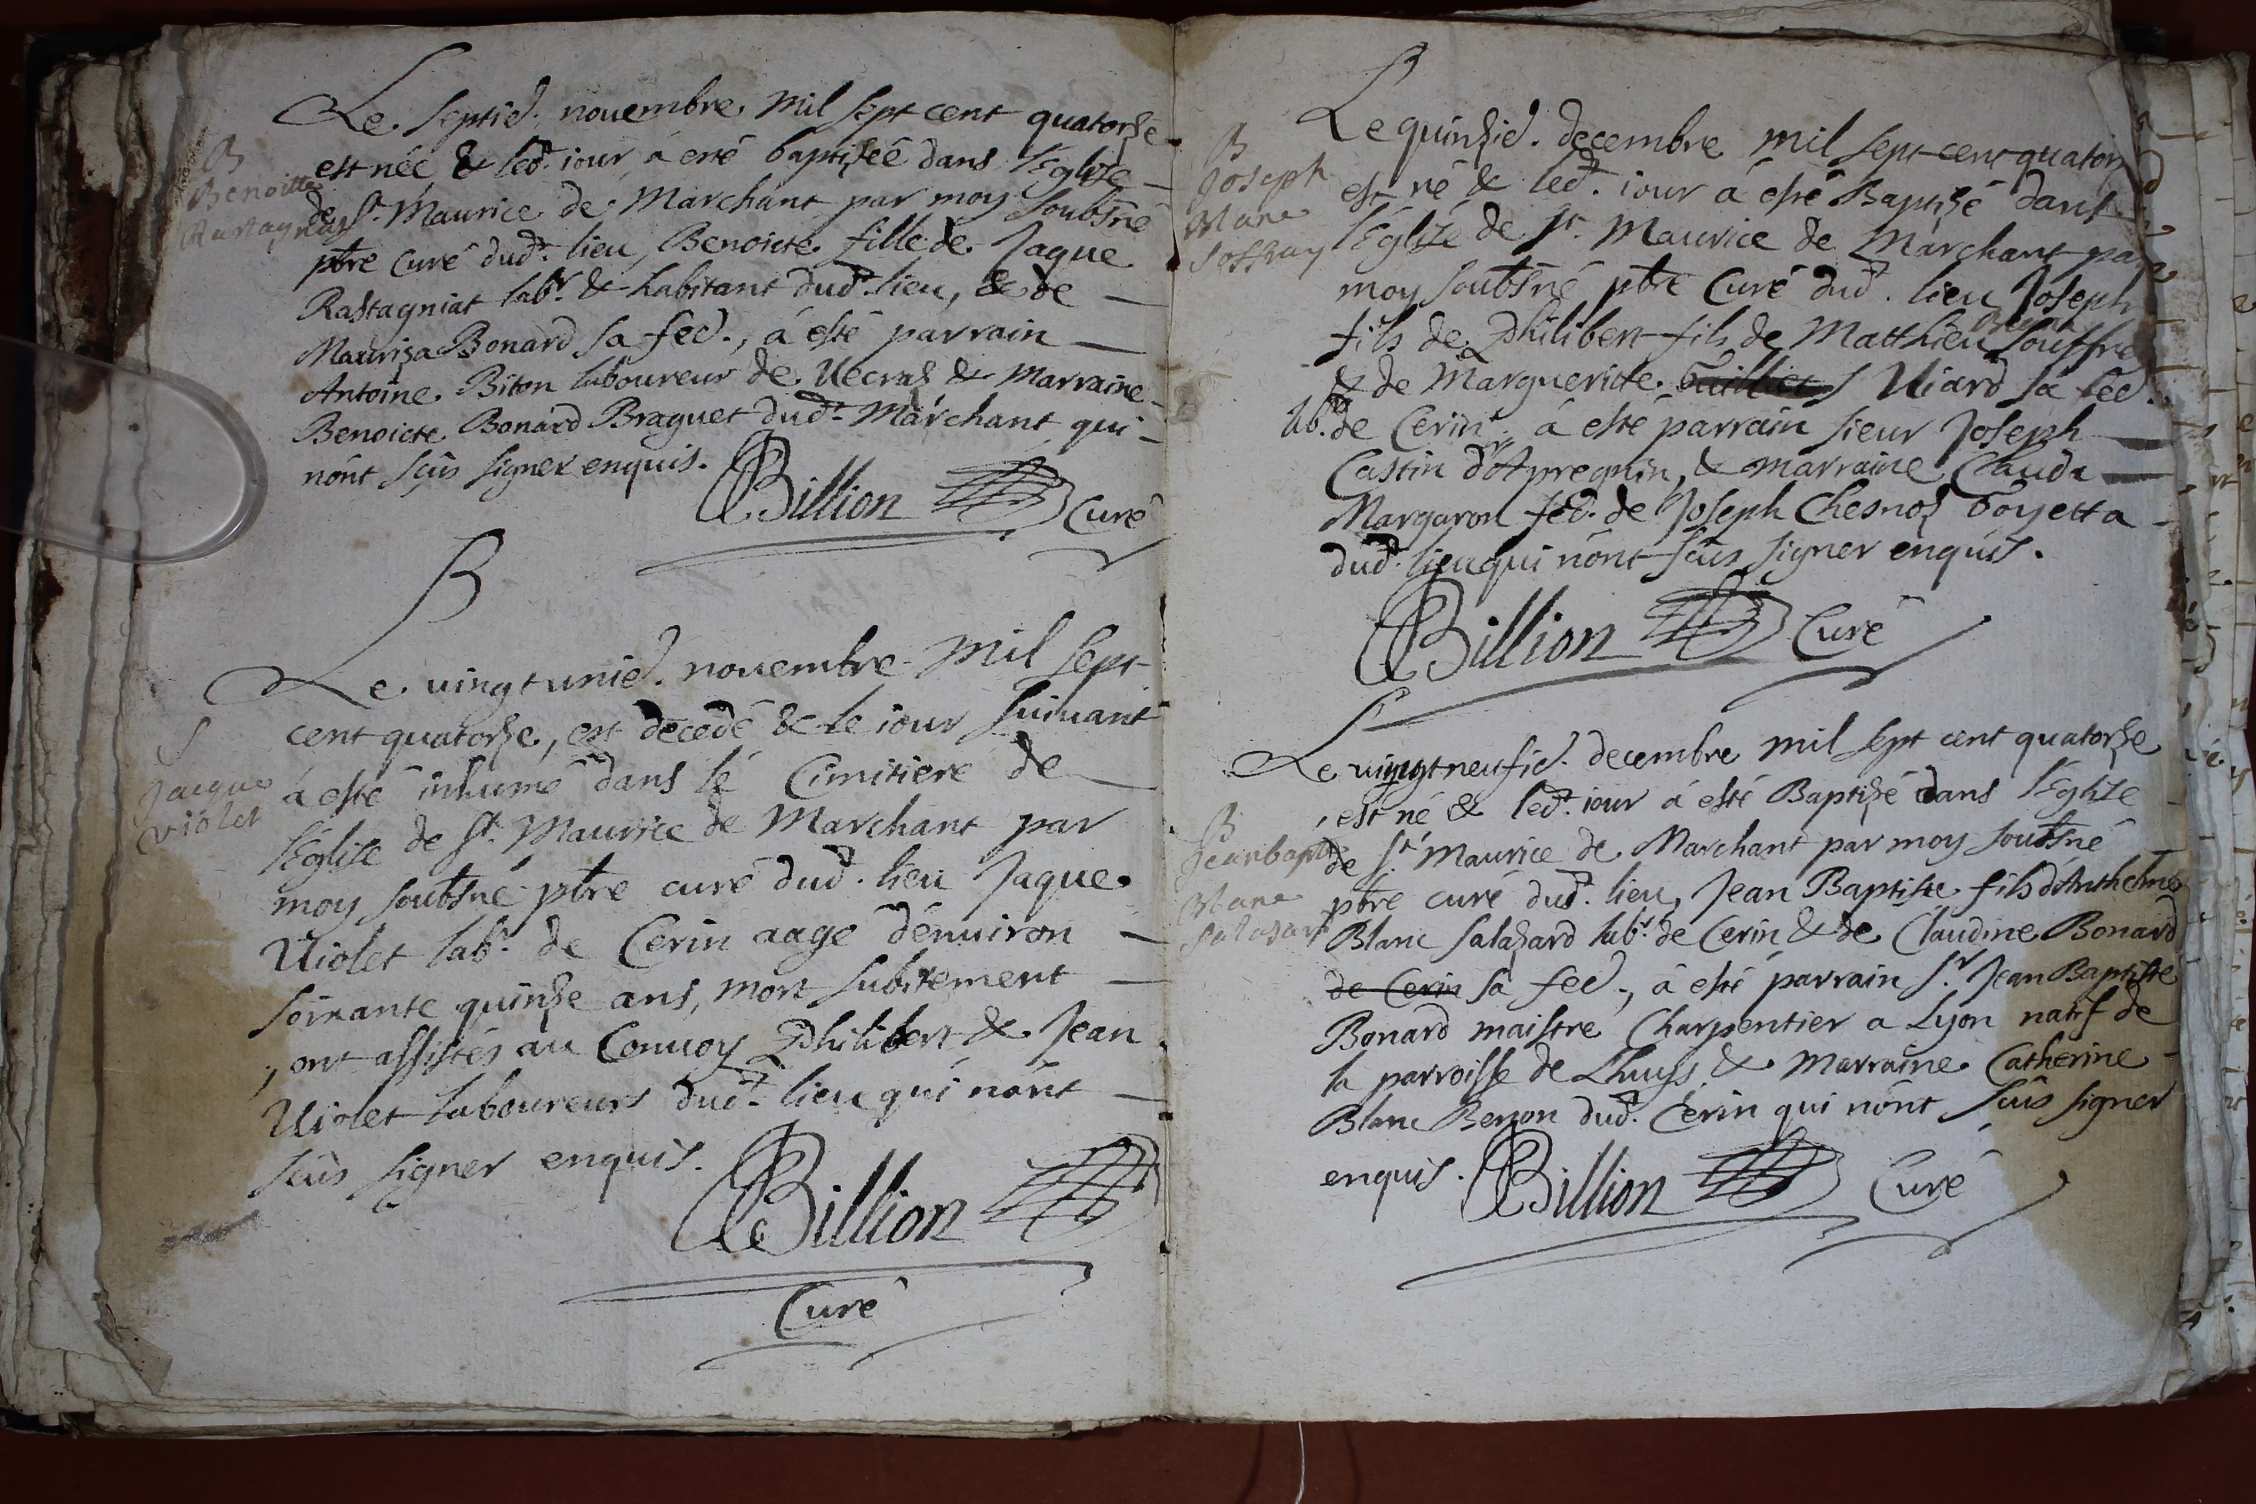 Le septied. nouembre mil sept cent quatorze
est née & led. iour á esté baptiseé dans l'Eglize
B
Benoitte
Rastagniat
de St. Maurice de Marchant par moy soubsné
ptre Curé dud. lieu, Benoicte fille de Jaque
Rastagniat labr. & habitant dud. lieu, & de
Mauriza Bonard sa fed., á esté parrain
Antoine Biton laboureur de Vecras & marraine
Benoicte Bonard Braguet dud. Marchant qui
nónt sçûs signer enquis.
Billion Curé
B
Le uingtunied. nouembre mil sept
cent quatorze, est decedé & le iour suiuant
S
Jacque
violet
á esté inhumé dans le Cimitiere de
l'Eglise de St. Maurice de Marchant par
moy soubsné ptre curé dud. lieu Jaque
Uiolet labr. de Cerin aagé dénuiron
soixante quinze ans, mort subitement
, ont assistés au Conuoy Philibert & Jean
Uiolet laboureurs dud. lieu qui nónt
sçûs signer enquis.
Billion
Curé
B
Le quinzied. decembre mil sept cent quatorz
B
Joseph
Blanc
Soffray
est né & led. iour á esté Baptizé dans
l'Eglize de St. Maurice de Marchant par
moy soubsné ptre Curé dud. lieu Joseph
fils de Philibert fils de Matthieu Souffre
& de Marguericte Uiard sa fed.
labr. de Cerin á esté parrain sieur Joseph
Castin d'Apregnin, & marraine Clauda
Margaron fed. de Joseph Chesnos Goyetta
dud. lieu qui nónt sçûs signer enquis.
Billion Curé
Le uingtneufied. decembre mil sept cent quatorze
est né & led. iour á esté Baptizé dans l'Eglize
B
Jean bapte
Blanc
Salasard
de St. Maurice de Marchant par moy soubsné
ptre curé dud. lieu, Jean Baptiste fils d'Anthelme
Blanc Salazard labr. de Cerin & de Claudine Bonard
de Cerin sa fed., á esté parrain Sr. Jean Baptiste
Bonard maistre Charpentier a Lyon natif de
la parroisse de Lhuys & marraine Catherine
Blanc Benon dud. Cerin qui nónt sçûs signer
enquis. Billion Curé